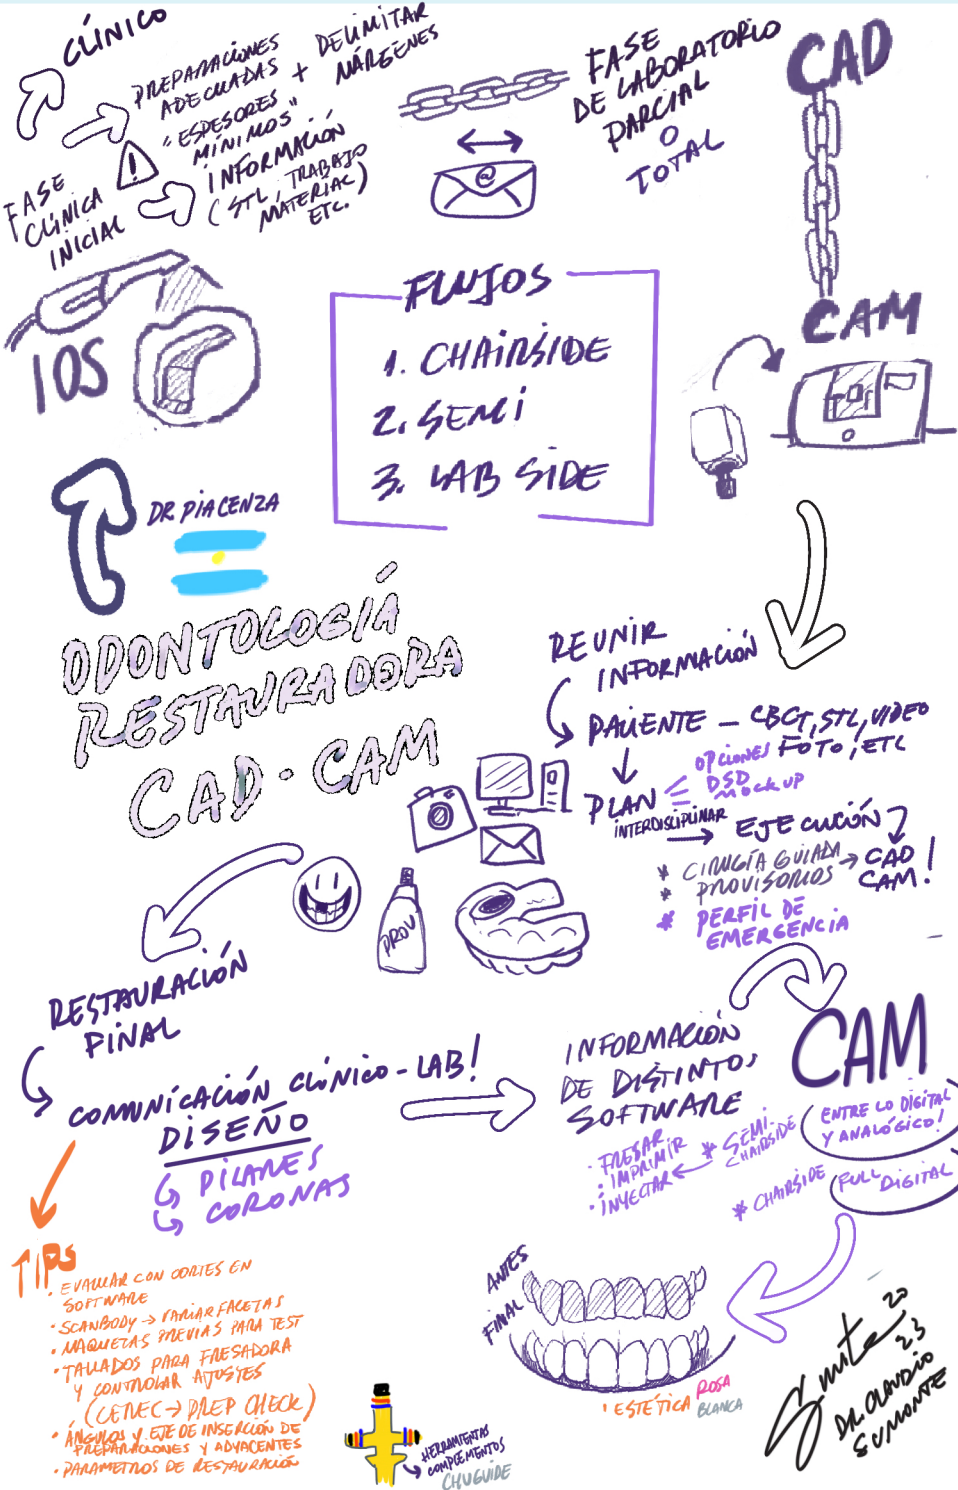 CLÍNICO
PREPARACIONES
ADECUADAS
+ DELIMITAR
MÁRGENES
"ESPESORES
MÍNIMOS"
!
FASE
CLÍNICA
INICIAL
INFORMACIÓN
(STL, TRABAJO
MATERIAL)
ETC.
IOS
@
FASE
DE LABORATORIO
PARCIAL
O
TOTAL
CAD
CAM
FLUJOS
1. CHAIRSIDE
2. SEMI
3. LAB SIDE
DR PIACENZA
ODONTOLOGÍA
RESTAURADORA
CAD · CAM
REUNIR
INFORMACIÓN
PACIENTE – CBCT, STL, VIDEO
FOTO, ETC
PLAN
INTERDISCIPLINAR
OPCIONES
DSD
MOCK UP
EJECUCIÓN
* CIRUGÍA GUIADA
* PROVISORIOS
CAD
CAM!
* PERFIL DE
EMERGENCIA
PROV
RESTAURACIÓN
FINAL
COMUNICACIÓN CLÍNICO - LAB!
DISEÑO
PILARES
CORONAS
INFORMACIÓN
DE DISTINTOS
SOFTWARE
· FRESAR
· IMPRIMIR
· INYECTAR
* SEMI
CHAIRSIDE
CAM
ENTRE LO DIGITAL
Y ANALÓGICO!
* CHAIRSIDE
FULL DIGITAL
TIPS
· EVALUAR CON CORTES EN
SOFTWARE
· SCANBODY → VARIAR FACETAS
· MAQUETAS PREVIAS PARA TEST
· TALLADOS PARA FRESADORA
Y CONTROLAR AJUSTES
(CEREC → PREP CHECK)
· ÁNGULOS Y EJE DE INSERCIÓN DE
PREPARACIONES Y ADYACENTES
· PARAMETROS DE RESTAURACIÓN
HERRAMIENTAS
COMPLEMENTOS
CHUGUIDE
ANTES
FINAL
· ESTÉTICA ROSA
BLANCA
2023
DR. CLAUDIO
SUMONTE